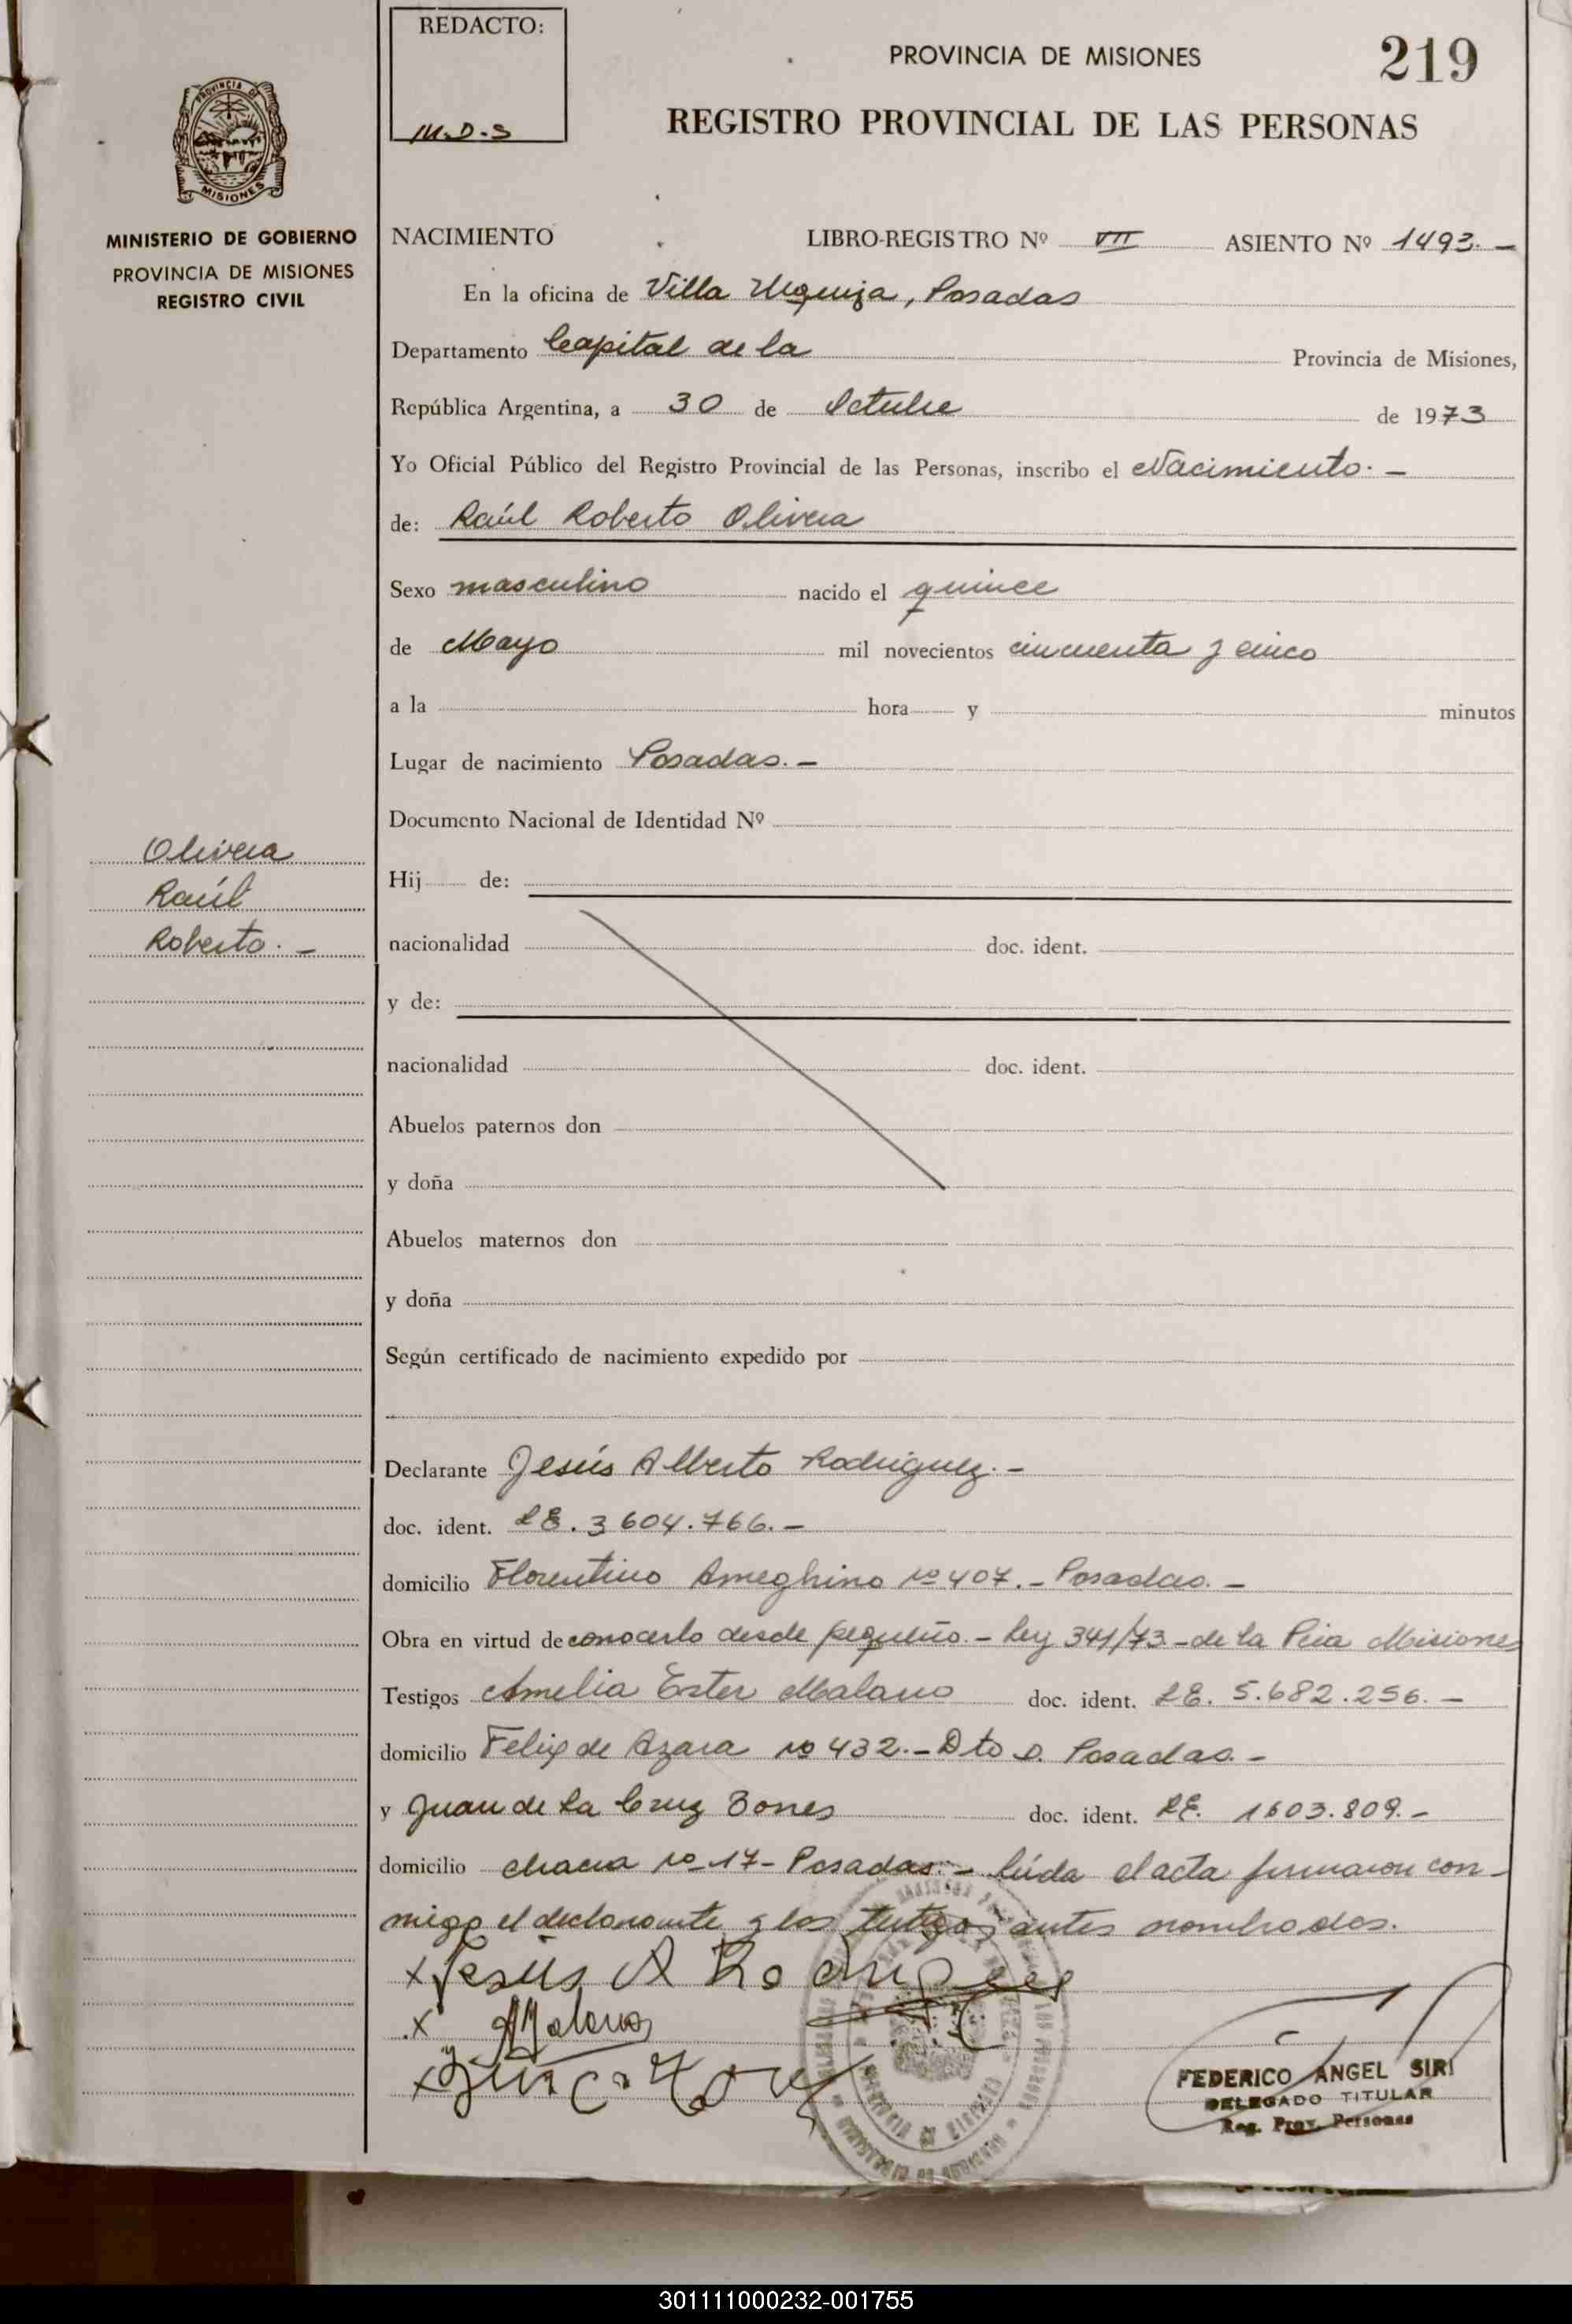 REDACTO:
M.D.S
PROVINCIA DE MISIONES
219
REGISTRO PROVINCIAL DE LAS PERSONAS
PROVINCIA DE
MISIONES
MINISTERIO DE GOBIERNO
PROVINCIA DE MISIONES
REGISTRO CIVIL
NACIMIENTO LIBRO-REGISTRO Nº VII ASIENTO Nº 1493.-
En la oficina de Villa Urquiza, Posadas
Departamento Capital de la Provincia de Misiones,
República Argentina, a 30 de Octubre de 1973
Yo Oficial Público del Registro Provincial de las Personas, inscribo el Nacimiento.-
de: Raúl Roberto Olivera
Sexo masculino nacido el quince
de Mayo mil novecientos cincuenta y cinco
a la hora y minutos
Lugar de nacimiento Posadas.-
Documento Nacional de Identidad Nº
Olivera
Raúl
Roberto.-
Hij de:
nacionalidad doc. ident.
y de:
nacionalidad doc. ident.
Abuelos paternos don
y doña
Abuelos maternos don
y doña
Según certificado de nacimiento expedido por
Declarante Jesús Alberto Rodriguez.-
doc. ident. LE. 3604.766.-
domicilio Florentino Ameghino nº 407.- Posadas.-
Obra en virtud de conocerlo desde pequeño.- Ley 341/73 - de la Pcia Misiones
Testigos Amelia Ester Malano doc. ident. LE. 5.682.256.-
domicilio Felix de Azara nº 432.- Dto D. Posadas.-
y Juan de La Cruz doc. ident. LE. 1603.809.-
domicilio chacra nº 17- Posadas.- leída el acta firmaron con-
migo el declarante y los testigos antes nombrados.
x Jesús A Rodriguez
x AMalano
x
FEDERICO ANGEL SIRI
DELEGADO TITULAR
Reg. Prov. Personas
301111000232-001755